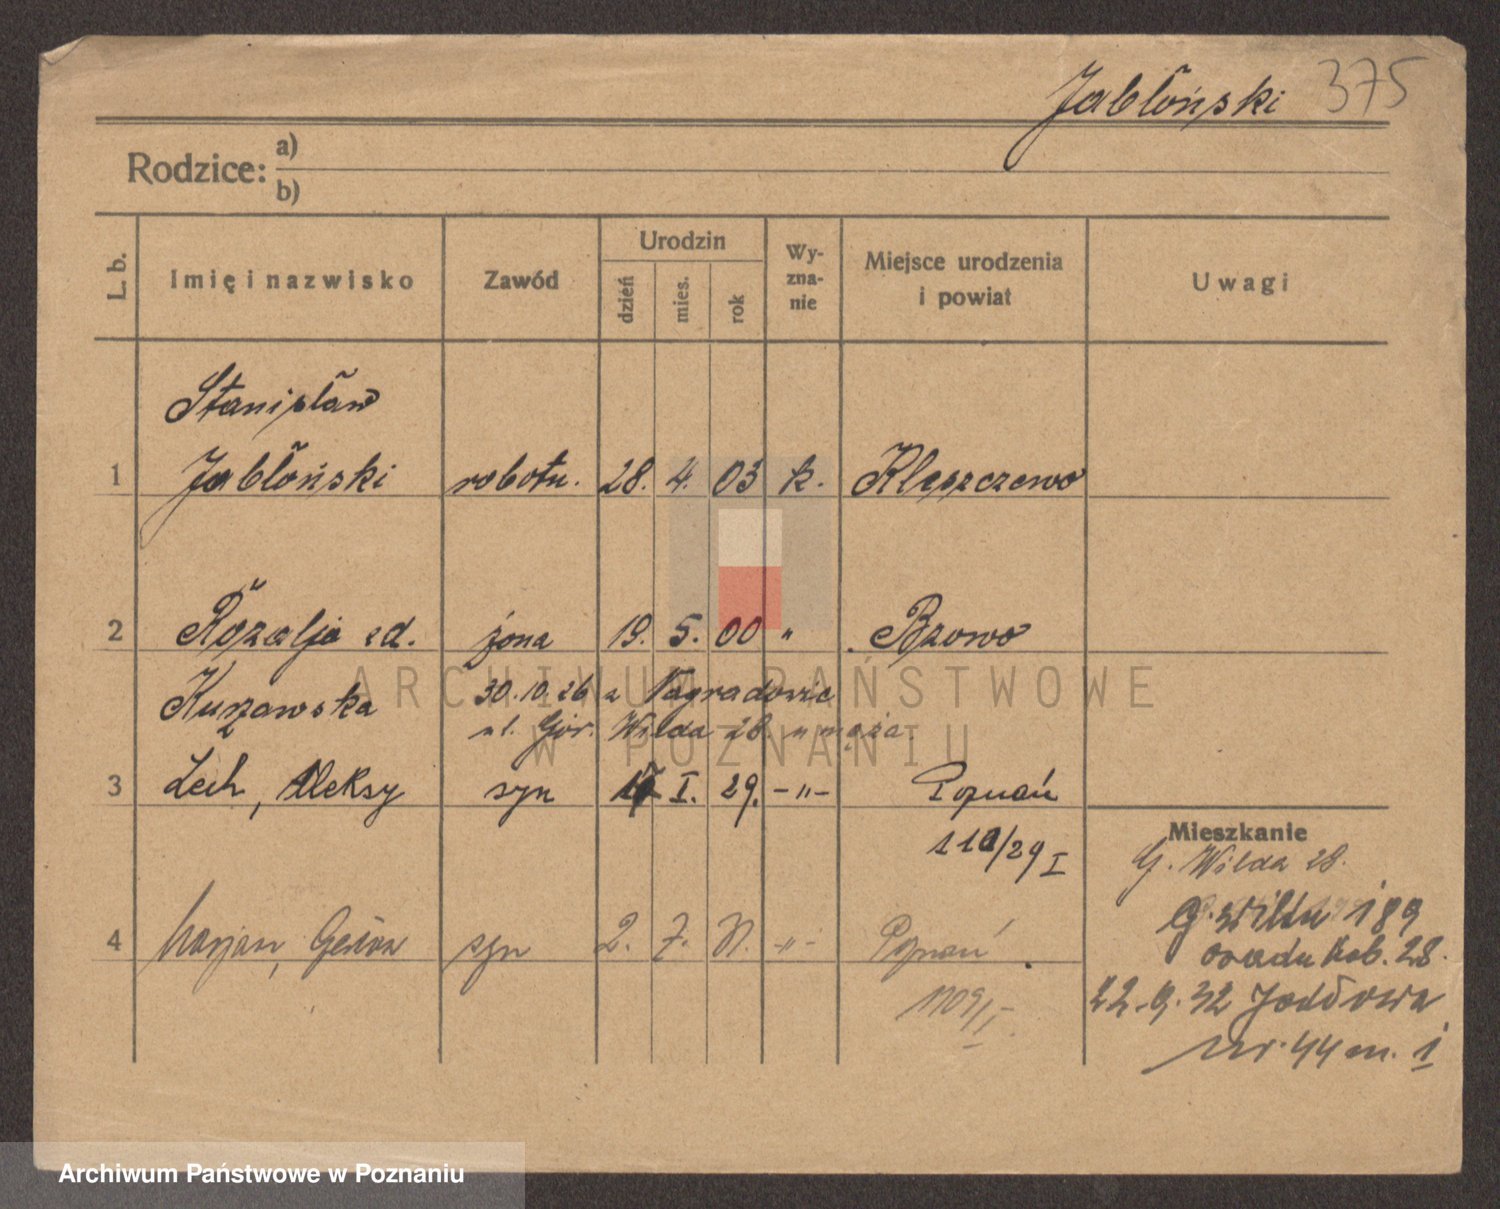 Jabłoński 375
Rodzice: a)
b)
L. b. Imię i nazwisko Zawód Urodzin dzień mies. rok Wyznanie Miejsce urodzenia i powiat Uwagi
Stanisław
1 Jabłoński robotn. 28. 4. 03 k. Kleszczewo
2 Rozalja zd. żona 19. 5. 00 " Brzowo
30.10.26 z
ul. Gór. Wilda 28. u męża
3 Lech, Aleksy syn I. 29. -"- Poznań
110/29 I
Mieszkanie
G. Wilda 28.
G. Wilda 189
4 Marjan, syn 2. 7. 31. -"- Poznań
28.
1109/I
22.9.32 Jodłowa
nr. 44 m. 1
ARCHIWUM PAŃSTWOWE
W POZNANIU
Archiwum Państwowe w Poznaniu